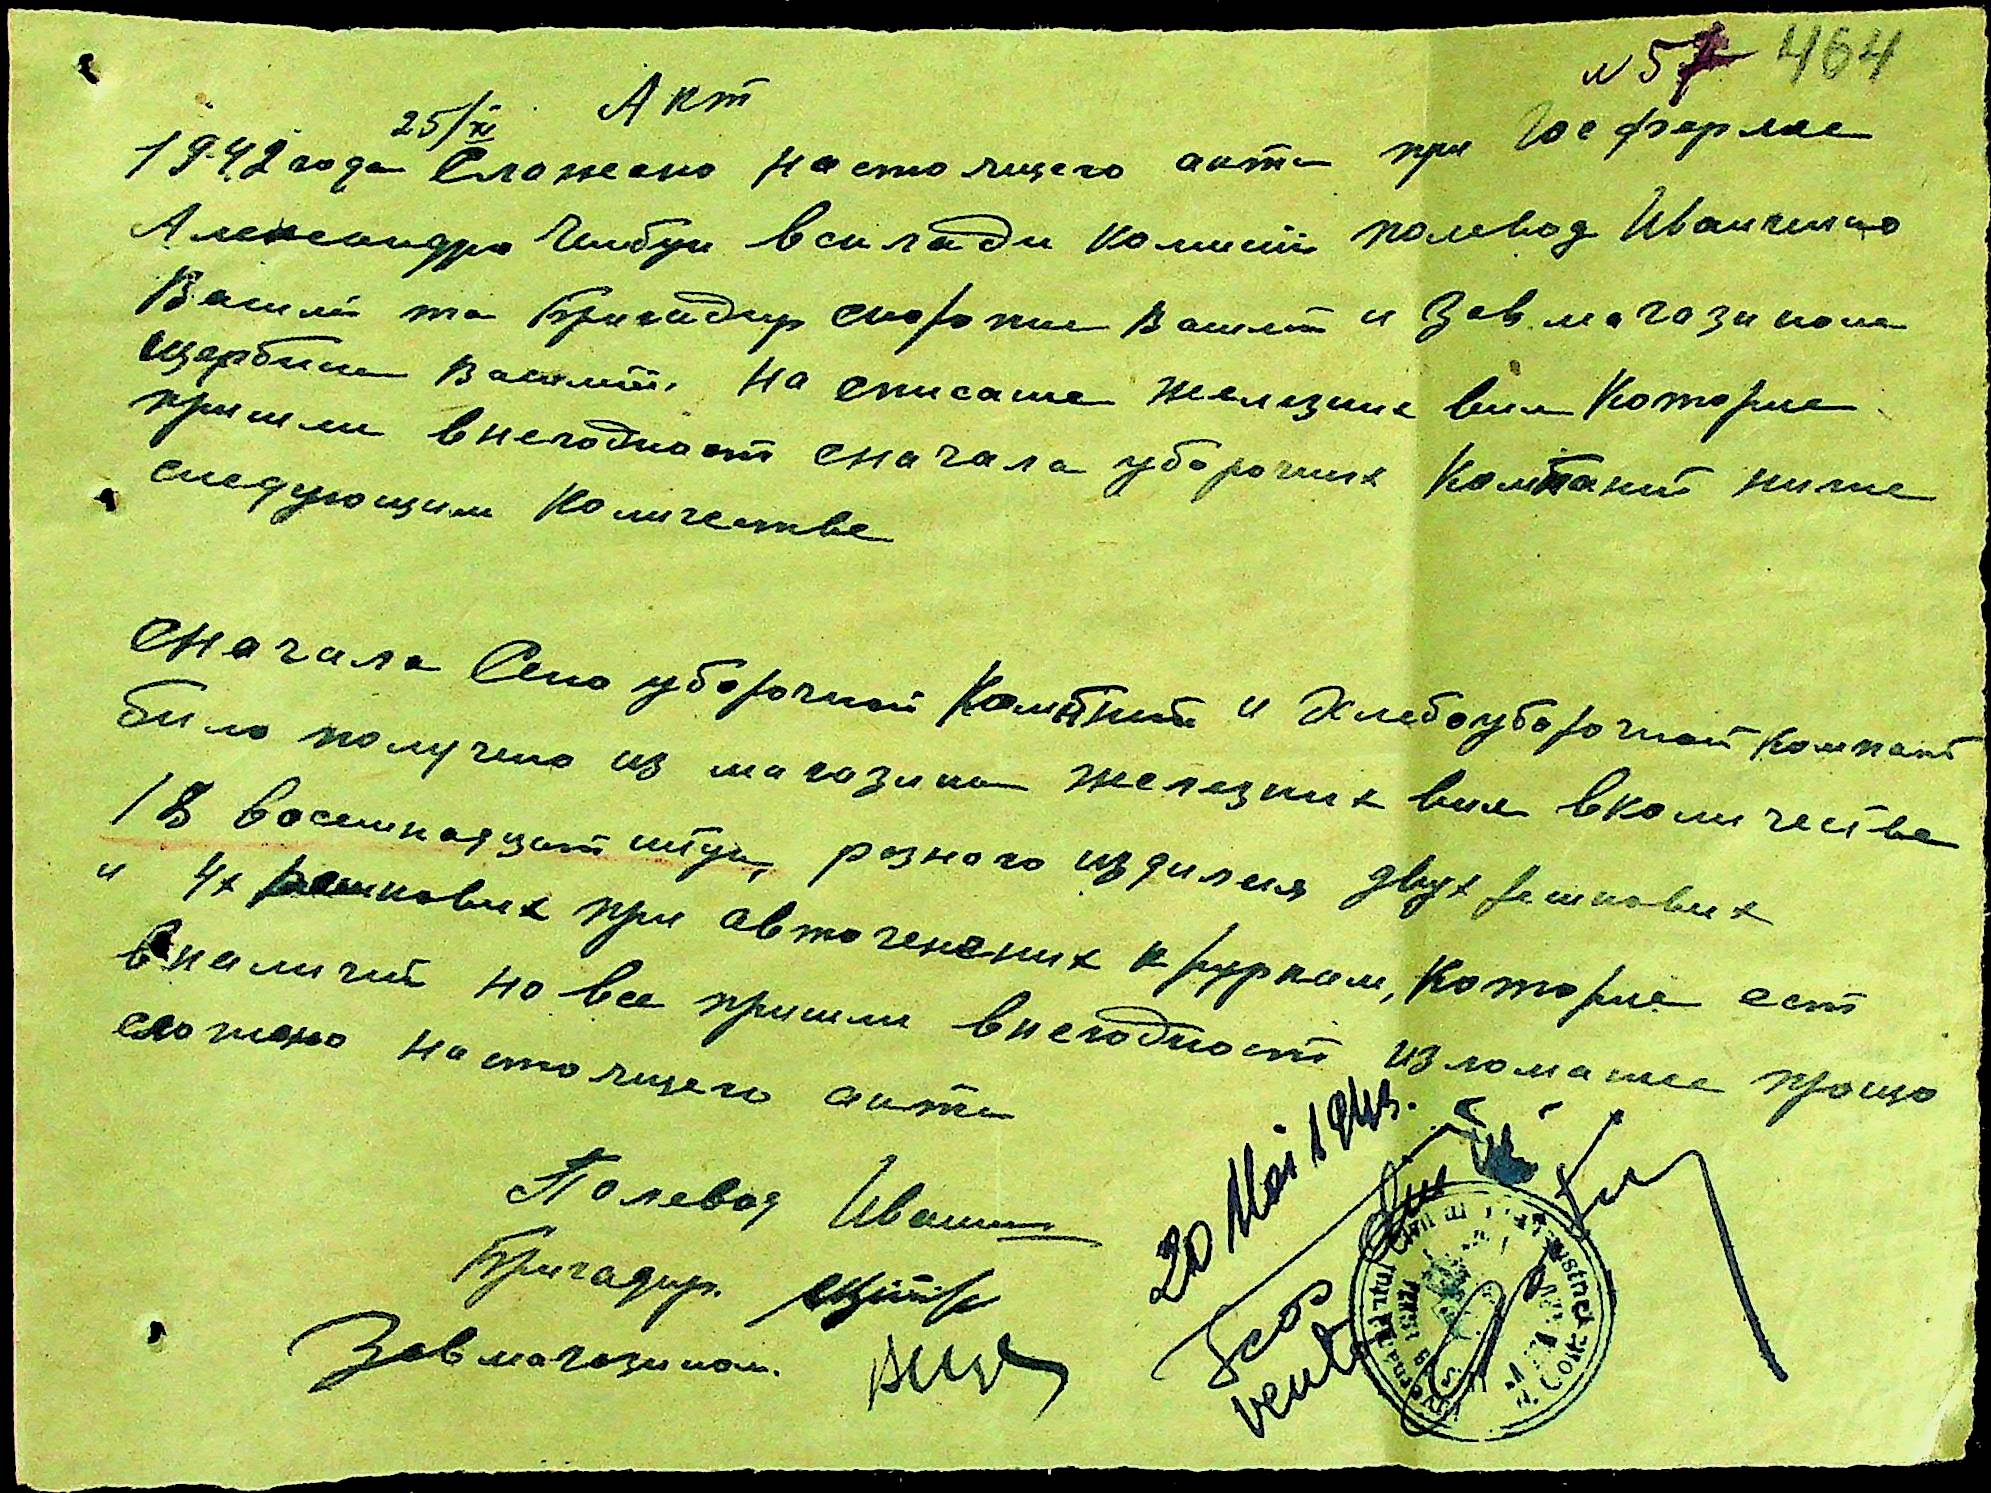 N 57 464
Акт
25/XI
1942 года Сложено настоящего акта при Госферме
Александра Чимбуи в складі комисії полевод Иванченко
Василь та бригадир Василь и Зав магазином
Щербина Василий. На списание железних вил Которие
пришли внегодност сначала уборочних Компаний ниже
следующим количестве
Сначала Сено уборочной Компаний и Хлебоуборочной компаній
било получено из магазина железних вил вколичестве
18 восемнадцат штук, разного изделия двух рожкових
и 4х рожкових при автогенених к руркам, Которие ест
вналичий но все пришли внегодност изломание прощо
сложено настоящего акта
Полевод Иванч
Бригадир.
Завмагазином.
20 Mai 1943.
Scos
venit